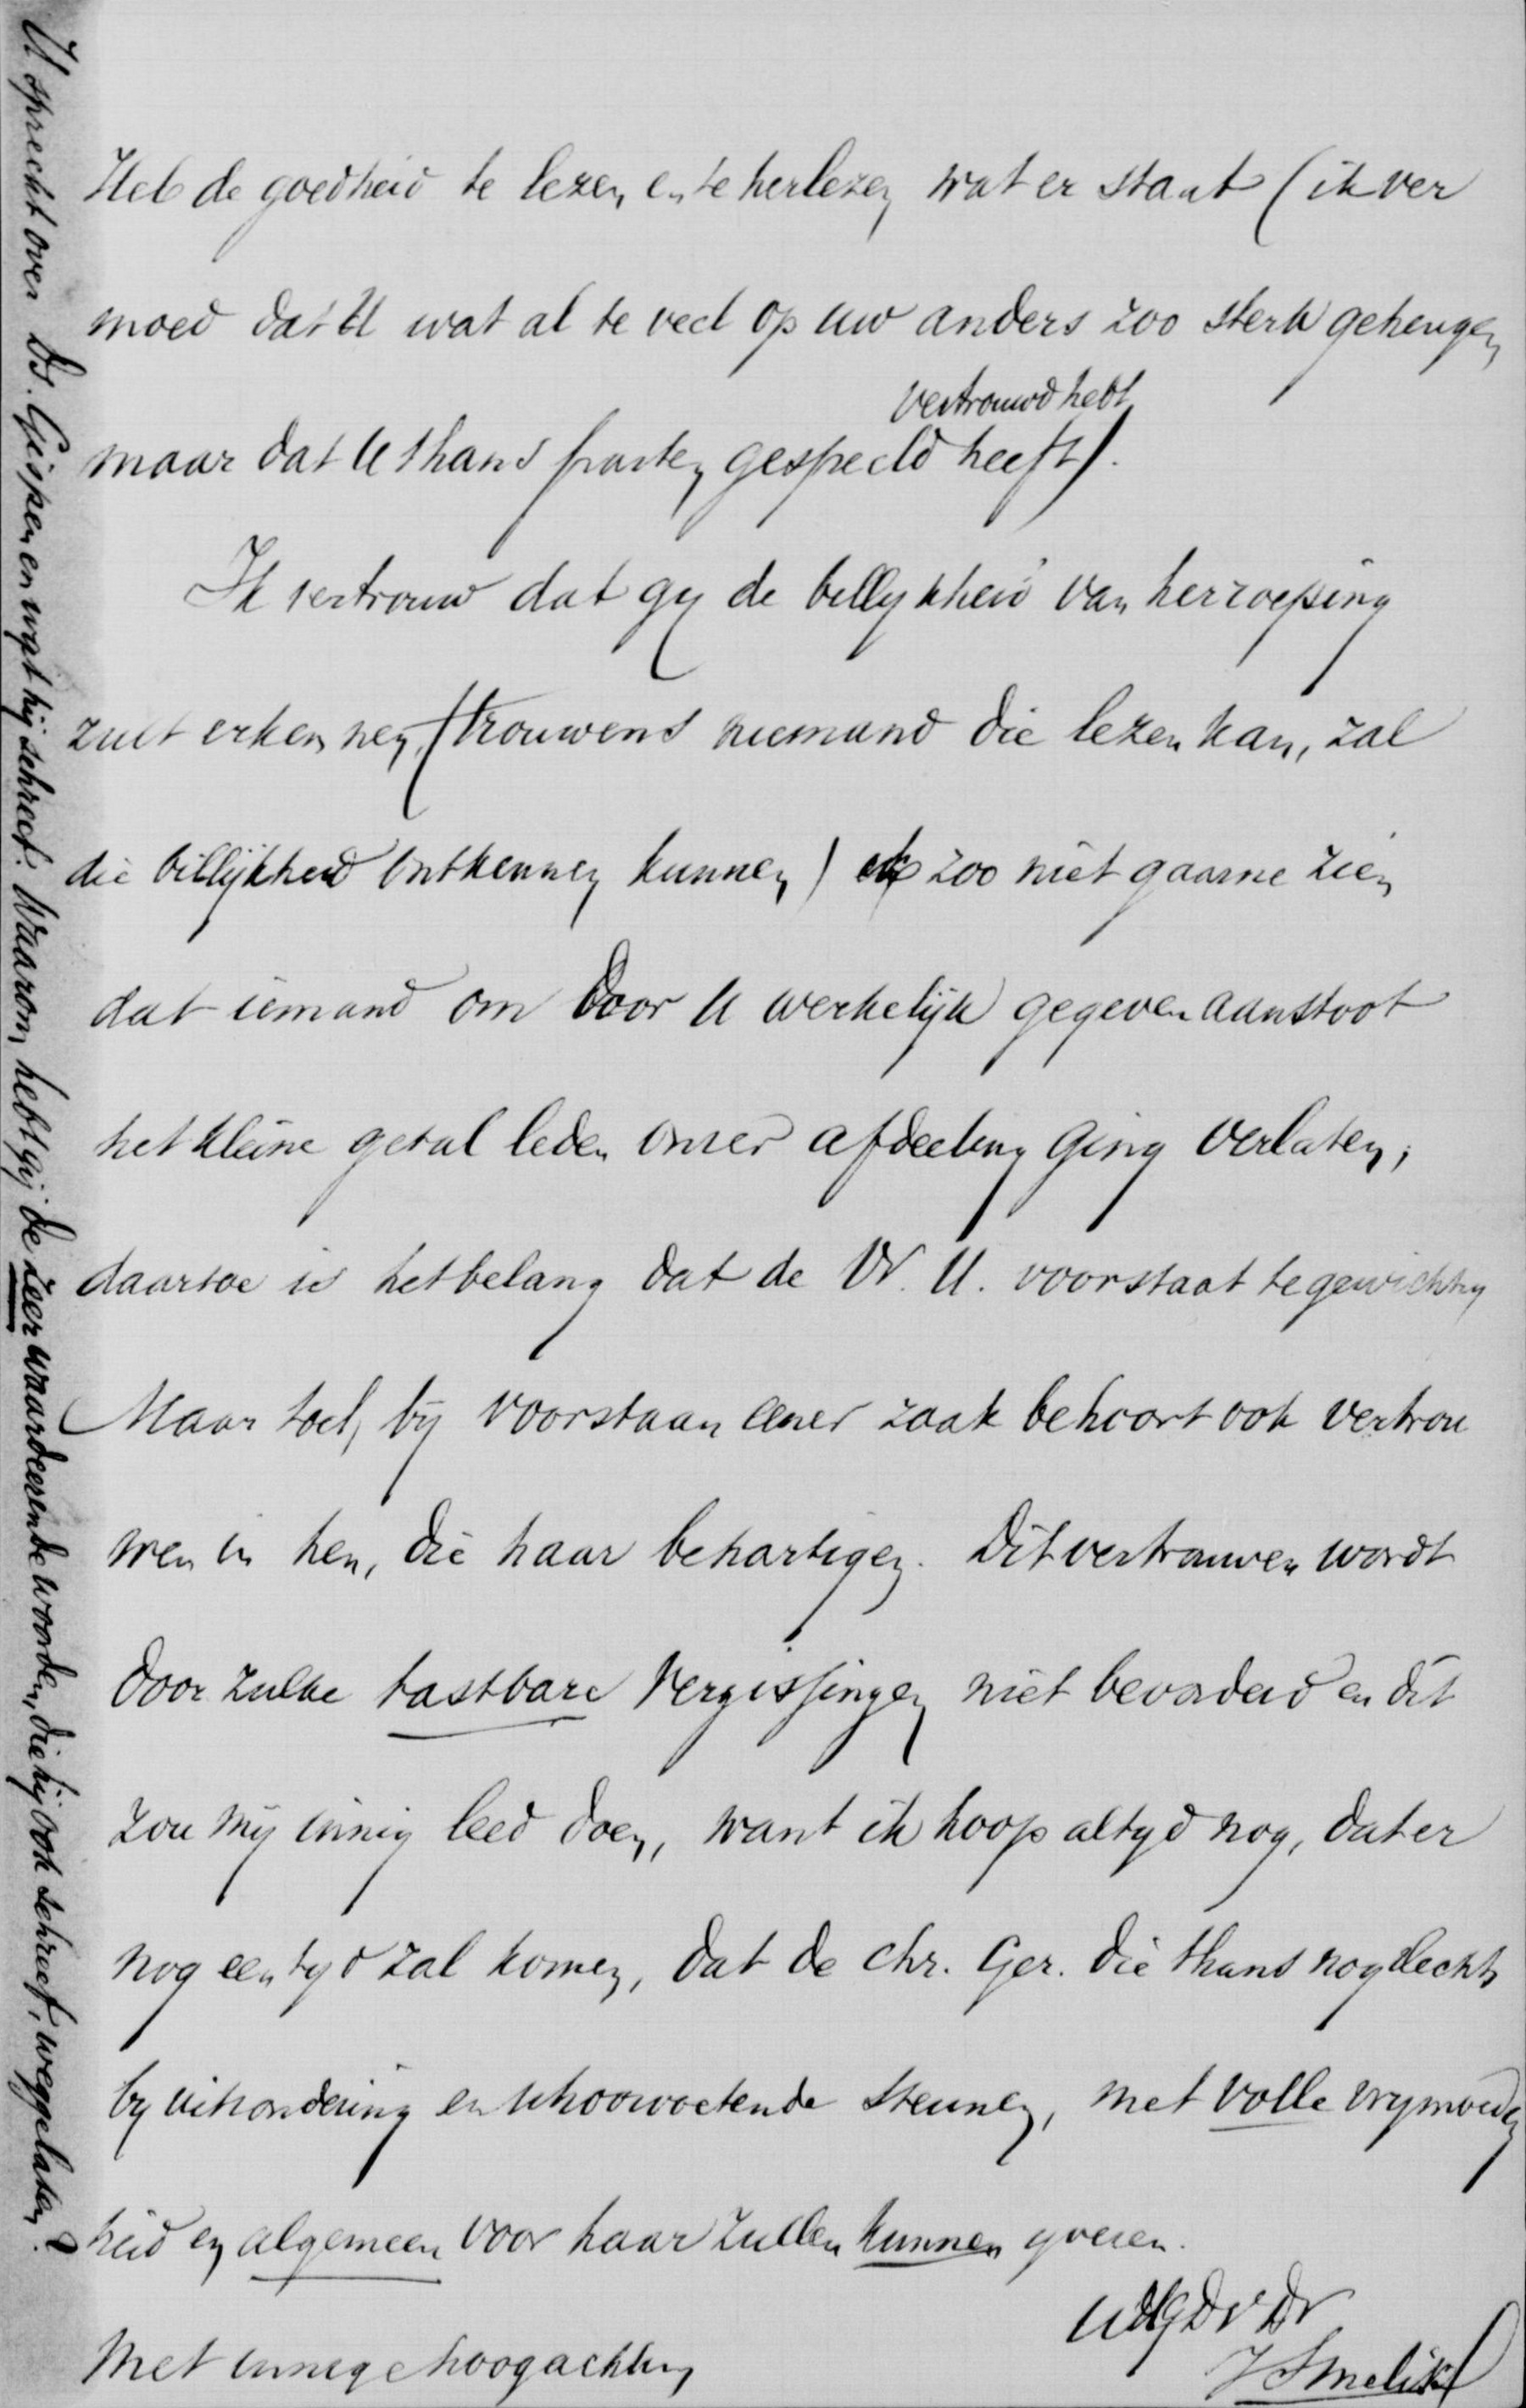 Heb de goedheid te lezen en te herlezen wat er staat (ik ver
moed dat U wat al te veel op uw anders zoo sterk geheugen
vertrouwd hebt
maar dat U thans parten gespeeld heeft).
Ik vertrouw dat gy de billykheid van herroeping
zult erkennen, (trouwens niemand die lezen kan, zal
die billijkheid ontkennen kunnen) zoo niet gaarne zien
dat iemand om door U werkelijk gegeven aanstoot
het kleine getal leden onzer afdeeling ging verlaten;
daartoe is het belang dat de V. U. voorstaat te gewichtig
Maar toch, bij voorstaan eener zaak behoort ook vertrou
wen in hen, die haar behartigen. Dit vertrouwen wordt
door zulke tastbare vergissingen niet bevorderd en dit
zou mij innig leed doen, want ik hoop altyd nog, dat er
nog een tyd zal komen, dat de Chr. Ger. die thans nog slechts
by uitzondering en schoorvoetende steunen, met volle vrymoedig
heid en algemeen voor haar zullen kunnen yveren.
Met innige hoogachting
UWEdDvDr
J Smelik
U spreekt over Ds. Gispen en wat hij schreef. Waarom hebt gij de zeer waardeerende woorden, die hij ook schreef, weggelaten?